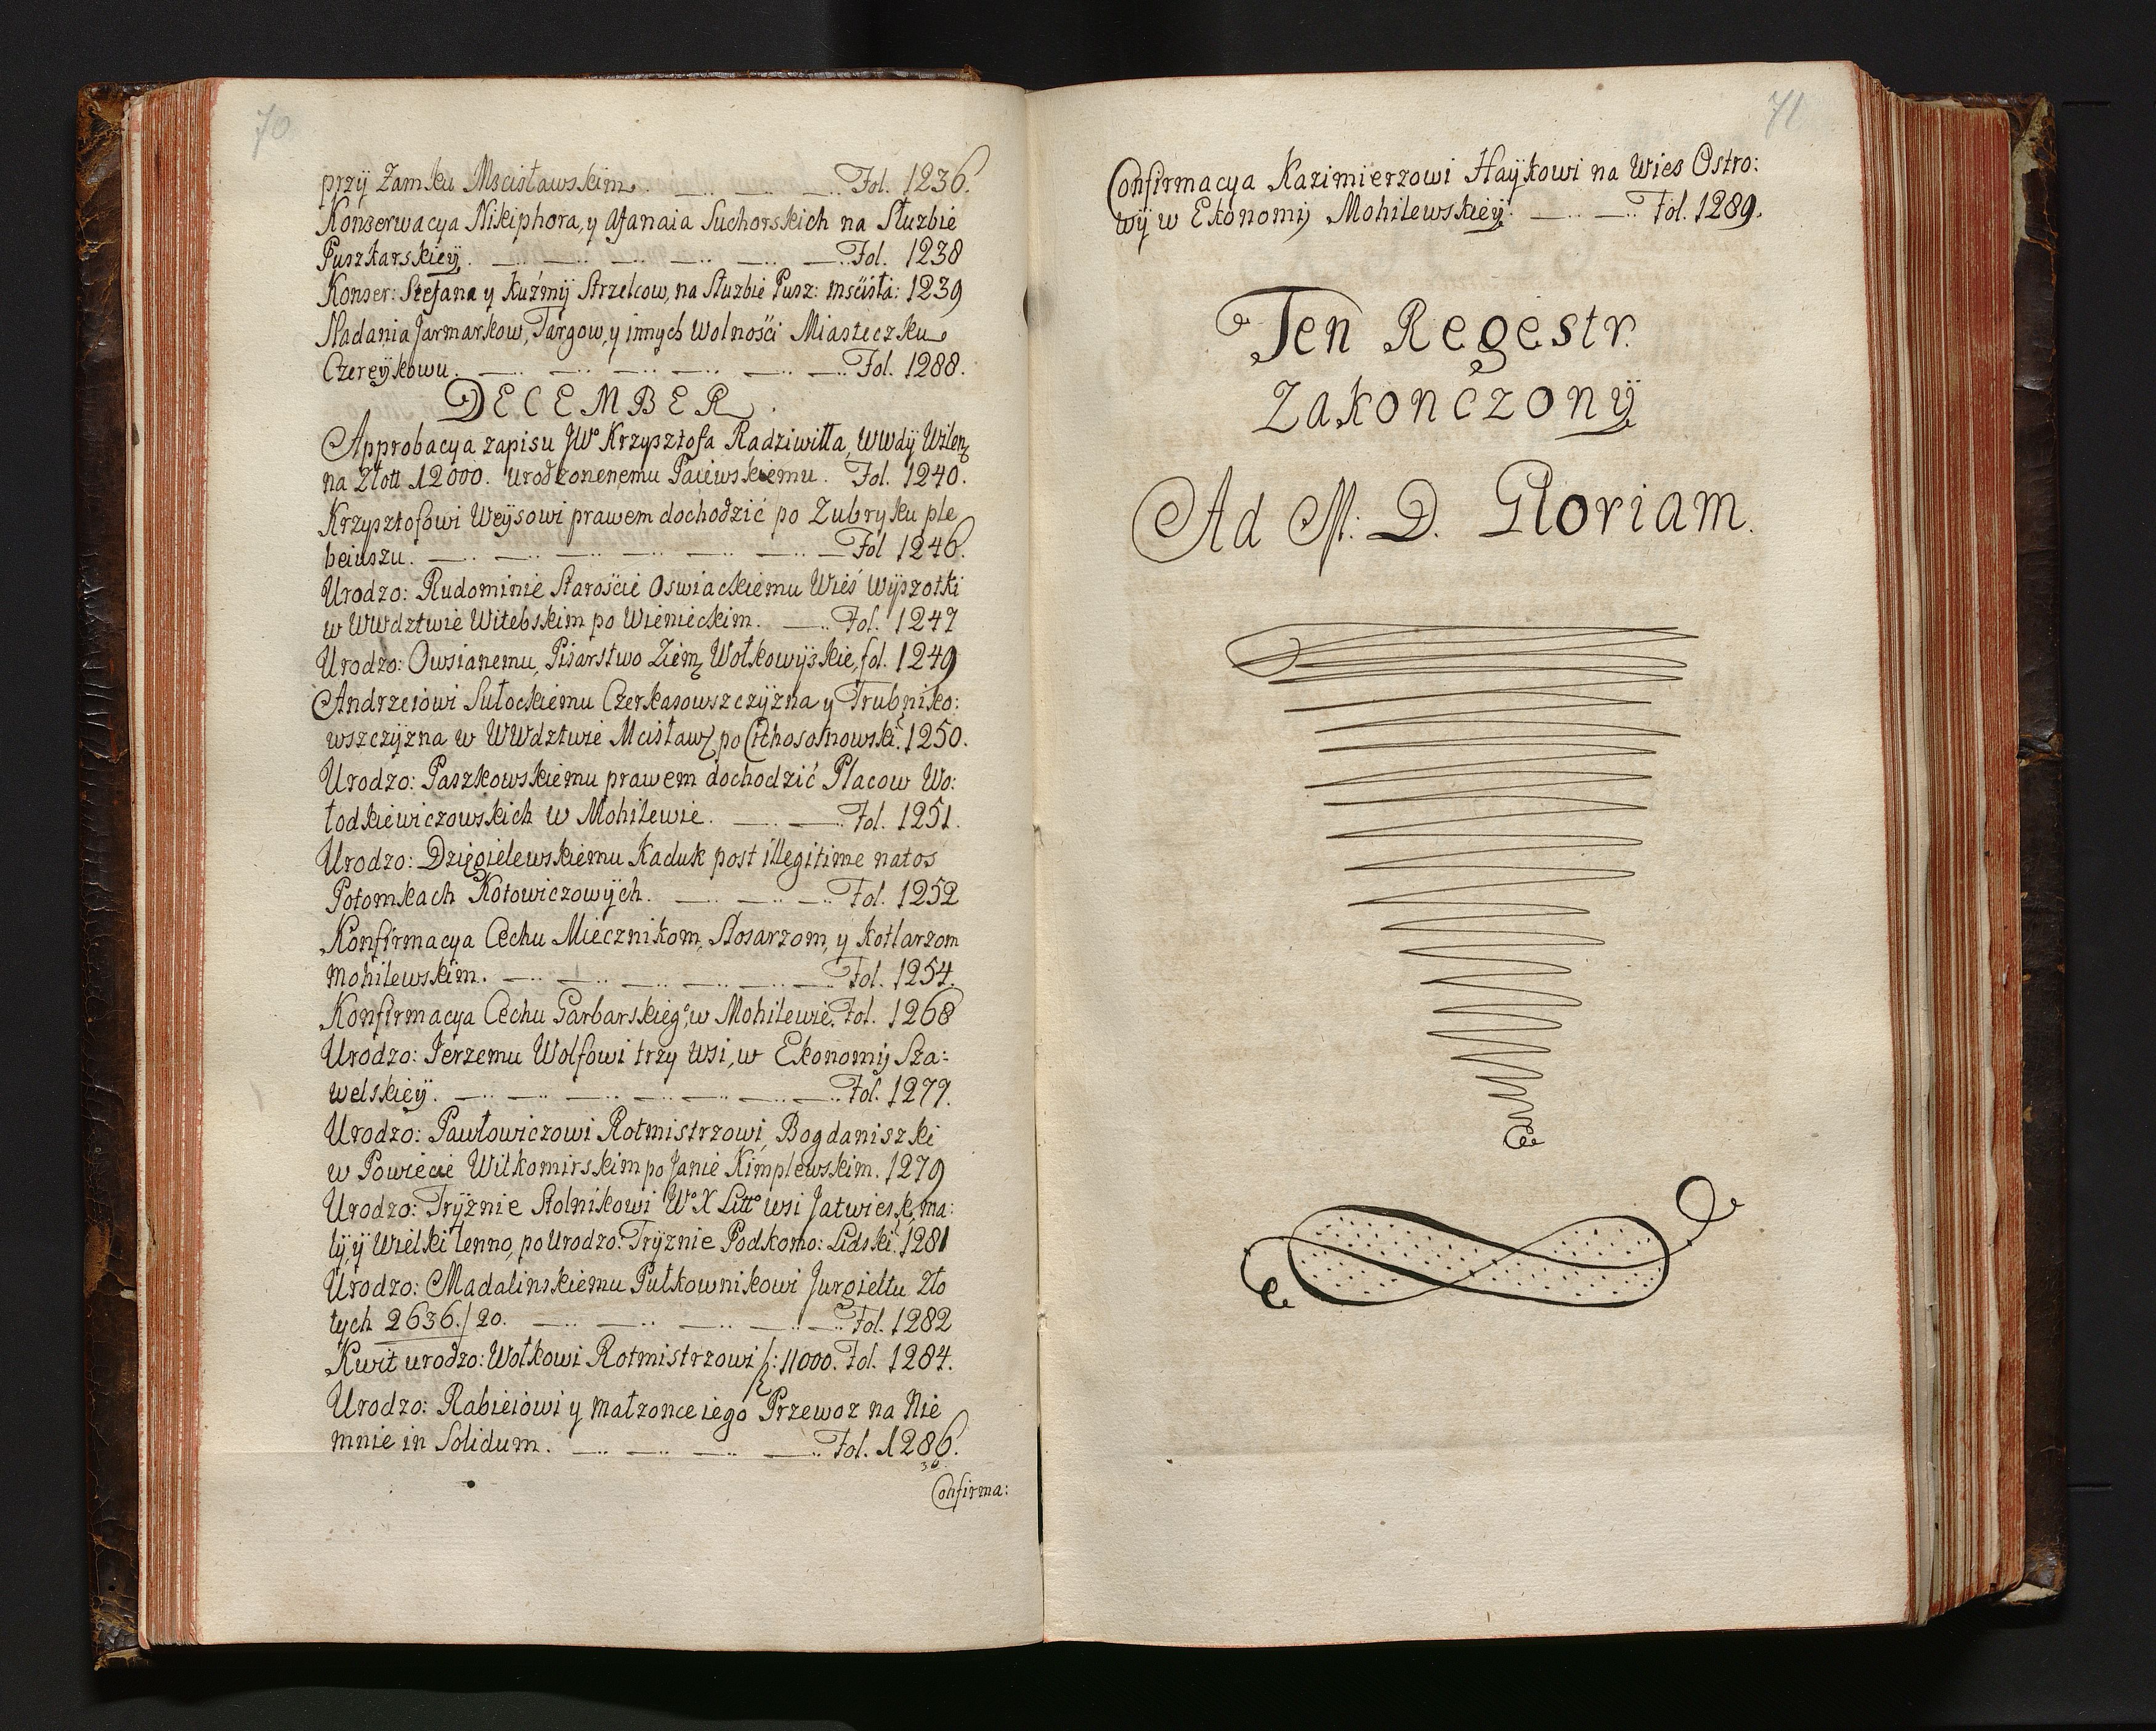 70
przÿ Zamku Mscisławskim. Fol. 1236.
Konserwacya Nikiphora, y Afanaia Suchorskich na Słuzbie
Puszkarskieÿ. Fol. 1238
Konser: Stefana y Kuźmÿ Strzelcow, na Słuzbie Pusz: mśćisła: 1239
Nadania Jarmarkow, Targow, y innych Wolnośći Miasteczku
Czereÿkowu. Fol. 1288.
DECEMBER.
Approbacya zapisu JWo Krzysztofa Radziwiłła, WWdÿ Wilen
na Złott 12000. urodzonenemu Paciwskiemu. Fol. 1240.
Krzysztofowi Weÿsowi prawem dochodzić po Zubryku ple
beiuszu. Fol 1246.
Urodzo: Rudominie Starośćie Oswiackiemu Wieś Wÿszotki
w WWdztwie Witebskim po Wienieckim. Fol. 1247
Urodzo: Owsianemu, Pisarstwo Ziem Wołkowÿskie, fol. 1249
Andrzeiowi Sułockiemu Czerkasowszczÿzna y Trubniko:
wszczÿzna w WWdztwie Mcisław po Cichososnowski. 1250.
Urodzo: Paszkowskiemu prawem dochodzić Placow Wo:
łodkiewiczowskich w Mohilewie. Fol. 1251.
Urodzo: Dzięgielewskiemu Kaduk post illegitime natos
Potomkach Kotowiczowÿch. Fol. 1252
Konfirmacya Cechu Miecznikom, Slosarzom, y Kotlarzom
Mohilewskim. Fol. 1254.
Konfirmacya Cechu Garbarskieg°, w Mohilewie. Fol. 1268
Urodzo: Jerzemu Wolfowi trzy Wsi, w Ekonomij Sza:
welskieÿ. Fol. 1277.
Urodzo: Pawłowiczowi Rotmistrzowi, Bogdaniszki
w Powiecie Wiłkomirskim po Janie Kimplewskim. 1279
Urodzo: Trÿznie Stolnikowi W° X Litt° wsi Jatwiesk ma:
łÿ, ÿ Wielki lenno, po Urodzo: Trÿznie Podkomo: Lidski. 1281
Urodzo: Madalinskiemu Pułkownikowi Jurgieltu Zło
tych 2636./20. Fol. 1282
Kwit urodzo: Wołkowi Rotmistrzowi 11000. Fol. 1284.
Urodzo: Rabieiowi y małzonce iego Przewoz na Nie
mnie in Solidum. Fol. 1286.
Confirma:
71
Confirmacya Kazimierzowi Haÿkowi na Wies Ostro:
wÿ w Ekonomij Mohilewskieÿ. Fol. 1289.
Ten Regestr.
Zakonczonÿ
Ad M: D. Gloriam.